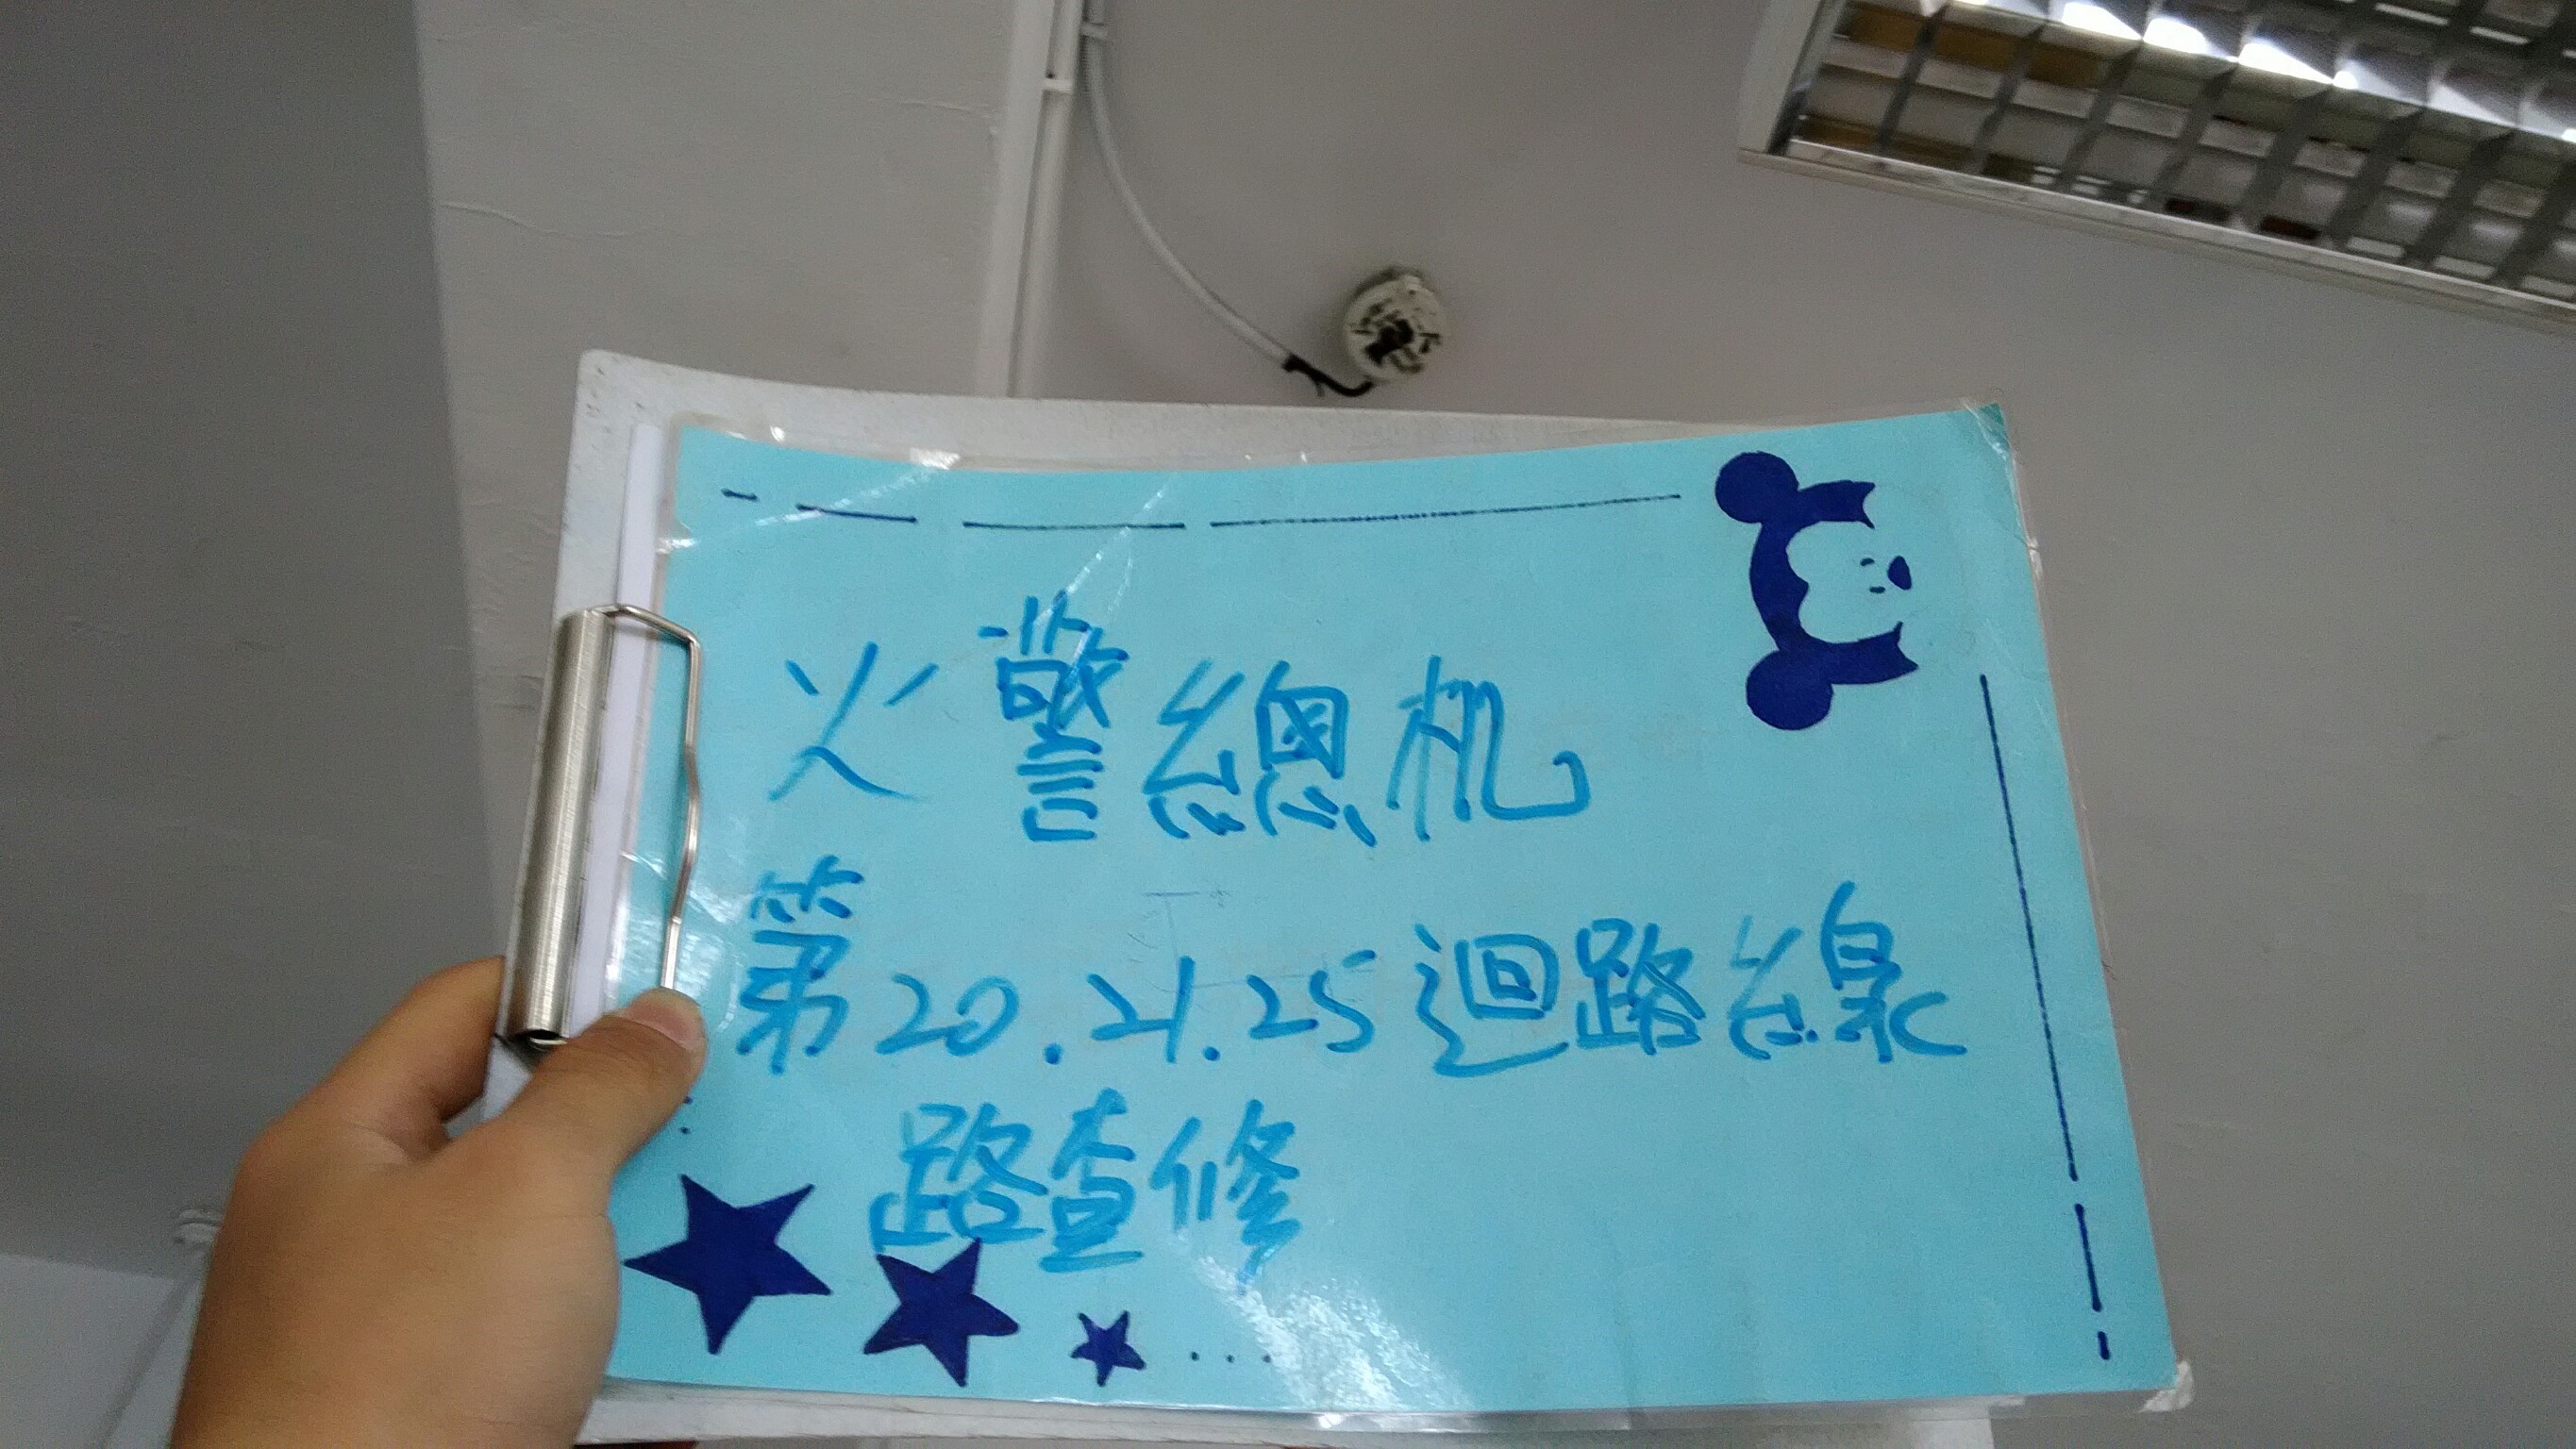 火警總机
第20.21.25迴路線
路查修